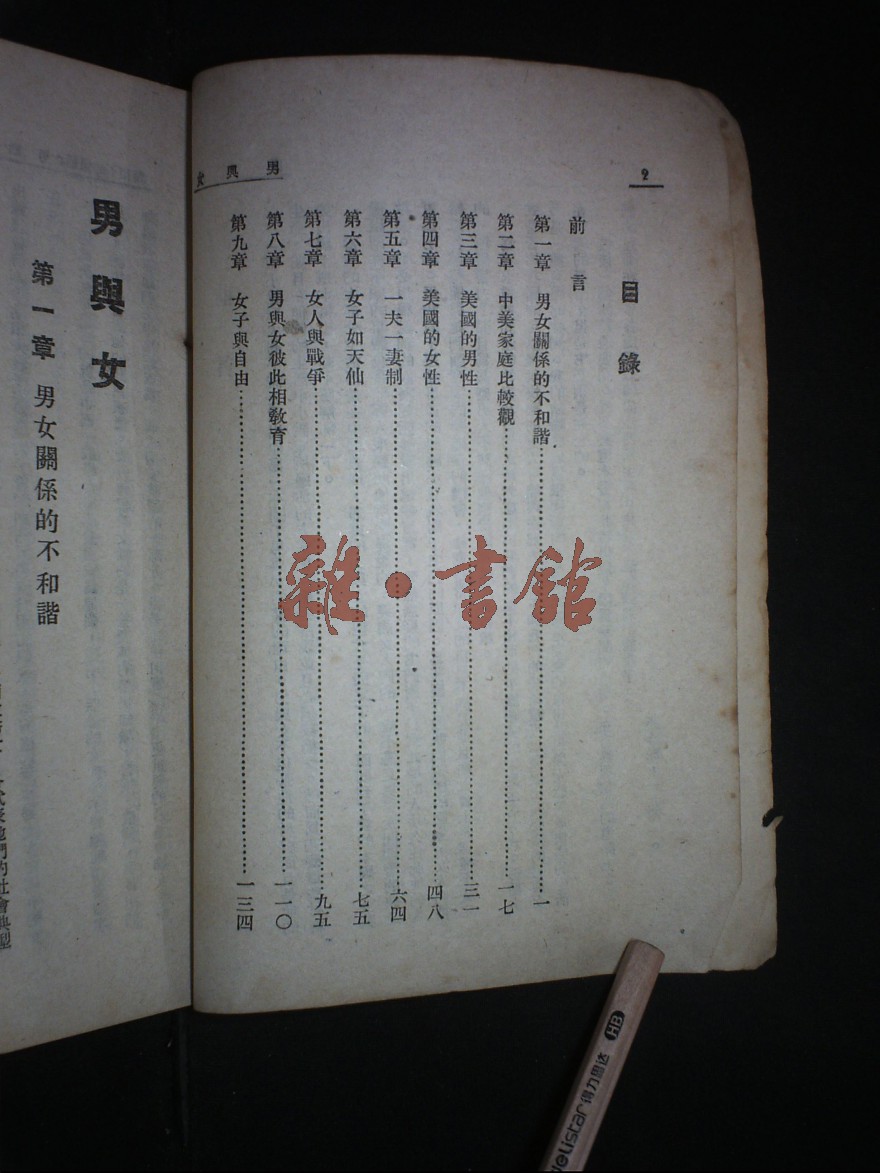 男與女
2
目錄
前言
第一章 男女關係的不和諧………一
第二章 中美家庭比較觀………一七
第三章 美國的男性………三一
第四章 美國的女性………四八
第五章 一夫一妻制………六四
第六章 女子如天仙………七五
第七章 女人與戰爭………九五
第八章 男與女彼此相敎育………一一〇
第九章 女子與自由………一三四
男與女
第一章 男女關係的不和諧
們的社會典型
雜·書館
HB
得力思达
Delistar